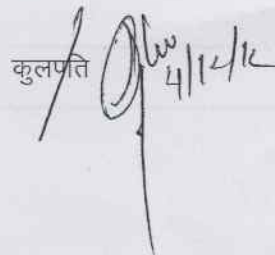 कुलपति
4/12/12